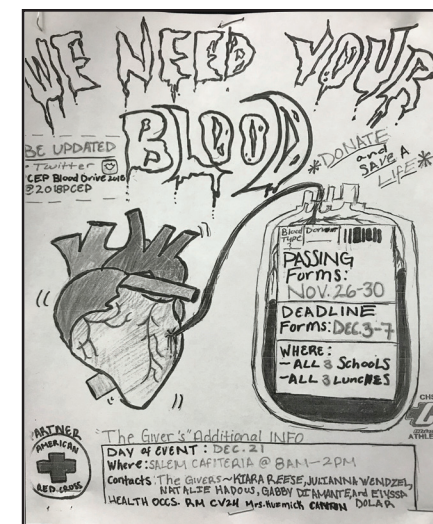 WE NEED YOUR
BLOOD
BE UPDATED
- Twitter
CEP Blood Drive 2018
@2018PCEP
*DONATE
and
SAVE A
LIFE*
Blood
Type
?
Donor
PASSING
Forms:
NOV. 26-30
DEADLINE
Forms: DEC. 3-7
WHERE:
- ALL 3 Schools
- ALL 3 LuncHES
PARTNER
AMERICAN
RED CROSS
"The Giver's" Additional INFO
DAY OF EVENT : DEC. 21
Where: SALEM CAFITERIA @ 8AM-2PM
Contacts: The Givers - KIARA REESE, JULIANNA WENDZEL,
NATALIE HADOUS, GABBY DIAMANTE, and ELYSSA
HEALTH OCCS. RM CV24 Mrs. CANTRIN DOLAR
ATHLE